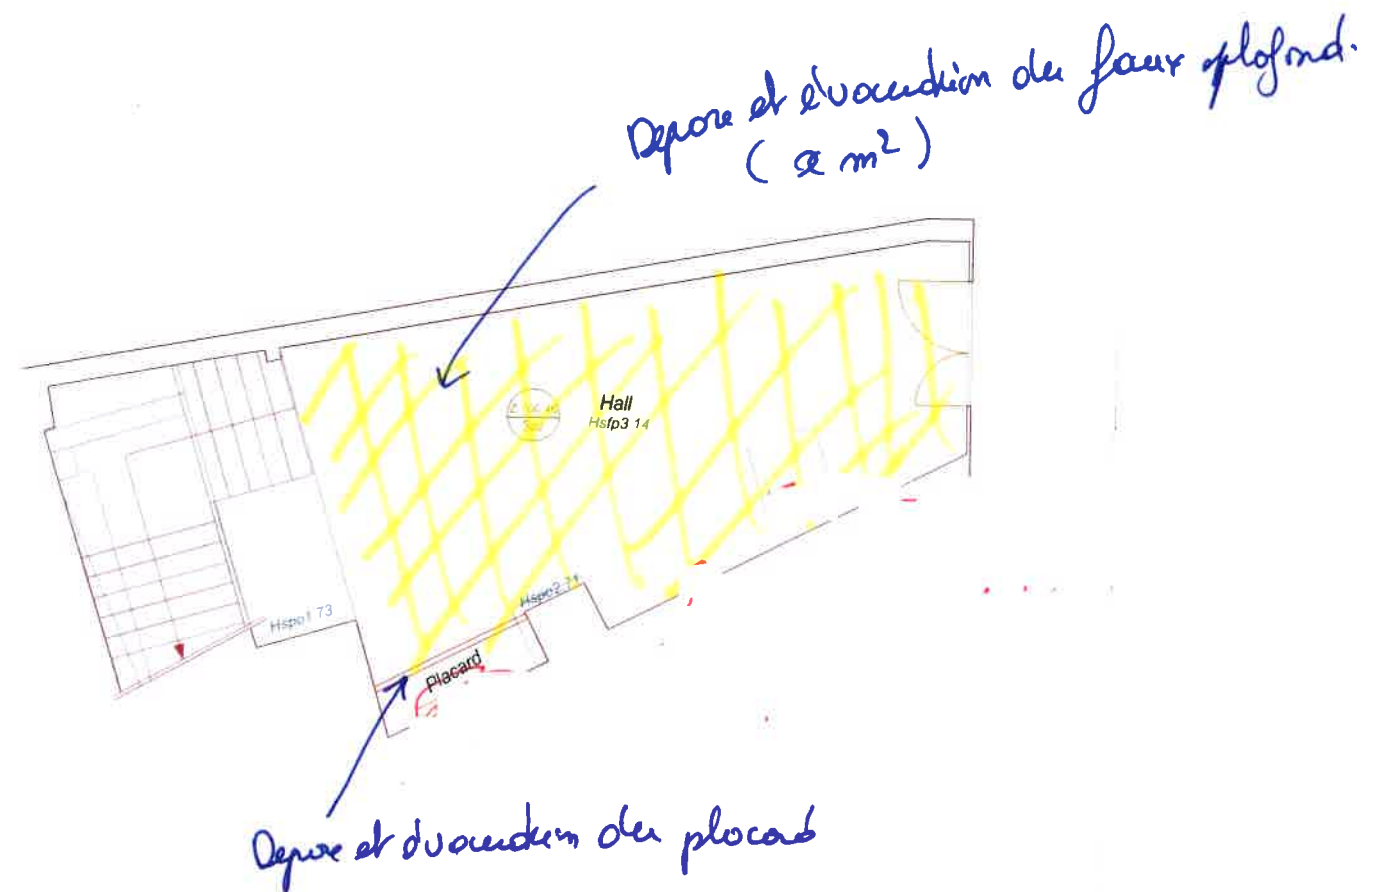 Depose et évacuation du faux plafond.
( m²)
Hall
Hsfp3 14
Sol
Hspo2 71
Hspo1 73
Placard
Depose et évacuation du placard